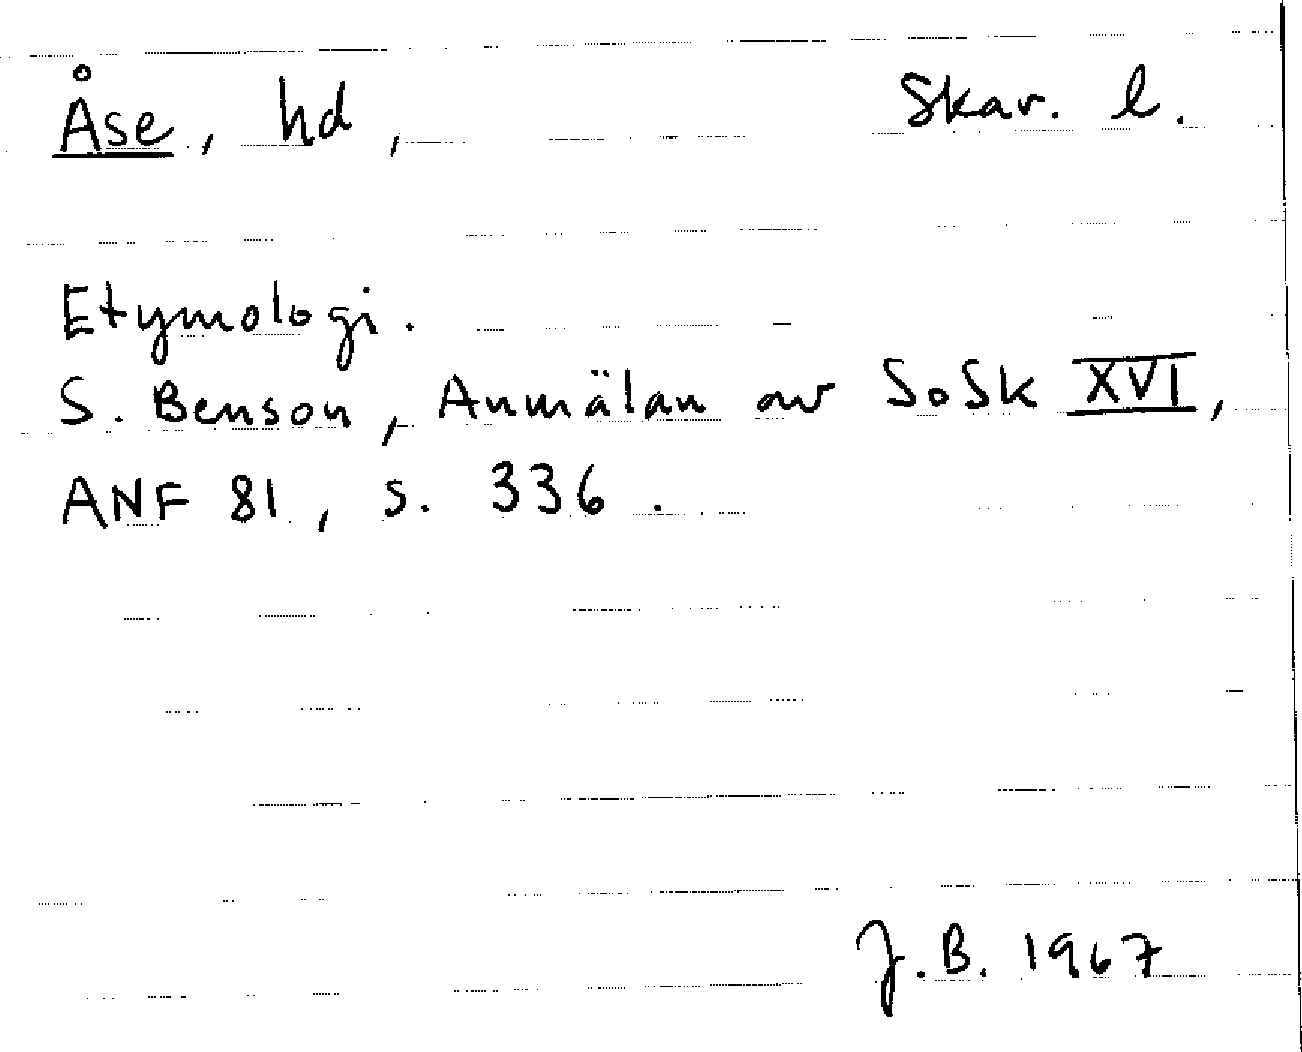 Åse, hd, Skar. l.
Etymologi.
S. Benson, Anmälan av SoSk XVI,
ANF 81, s. 336.
J.B. 1967